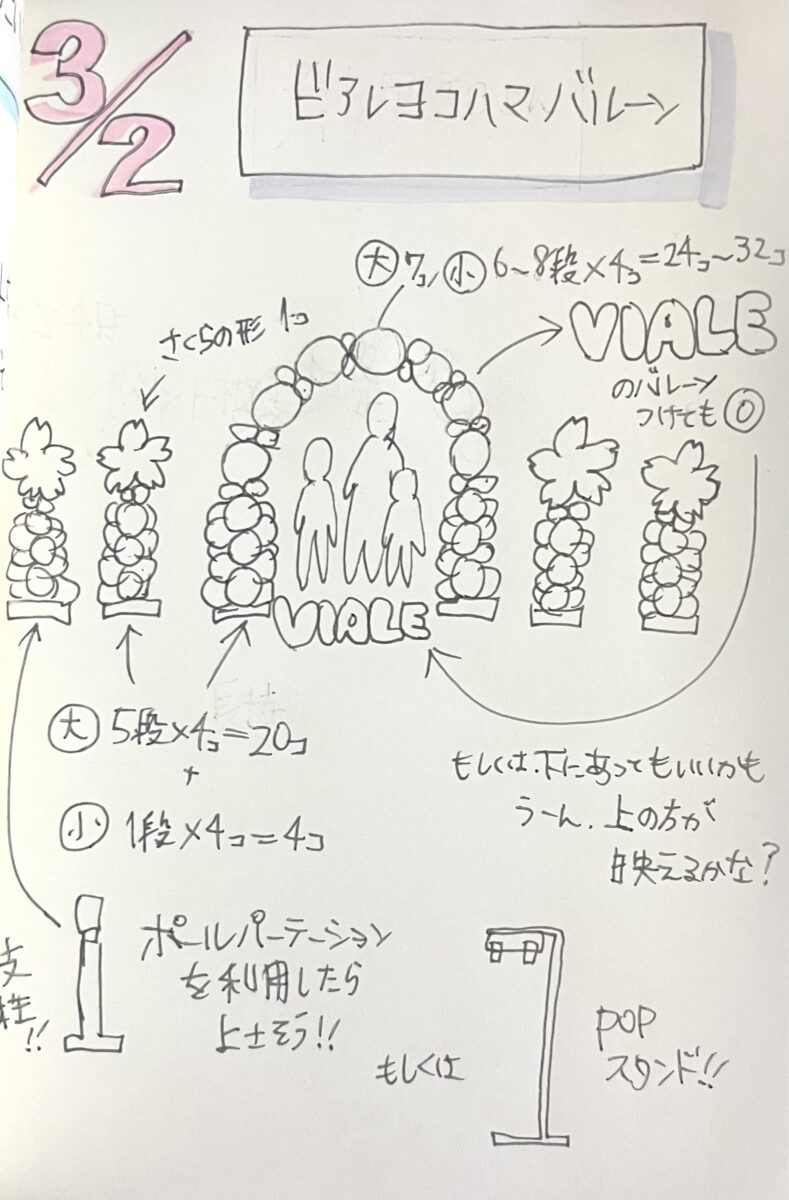 3/2
ビアレヨコハマバルーン
大 7コ、小 6~8段×4コ=24コ~32コ
さくらの形 1コ
VIALE
のバルーン
つけても○
VIALE
大 5段×4コ=20コ
+
小 1段×4コ=4コ
もしくは、下にあってもいいかも
うーん、上の方が
映えるかな?
支柱!!
ポールパーテーション
を利用したら
上士そう!!
もしくは
POP
スタンド!!